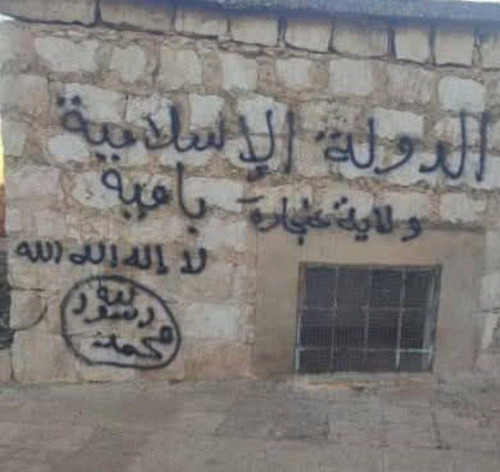 الدولة الإسلامية
باقية
ولاية عنجارة
لا إله الا الله
الله
رسول
محمد